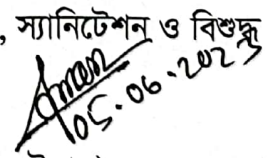 , স্যানিটেশন ও বিশুদ্ধ
05.06.2023